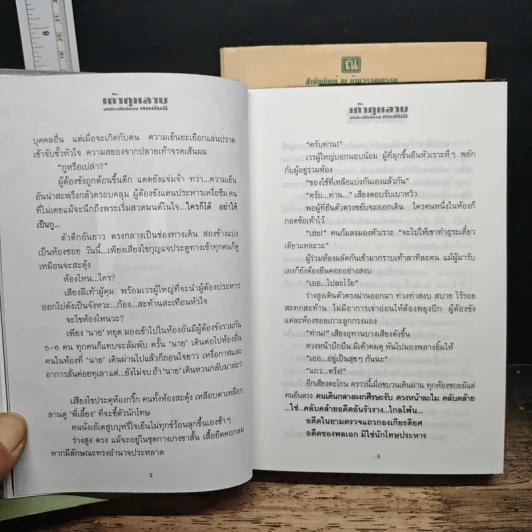 เถ้ากุหลาบ
บุคคลอื่น แต่เมื่อจะเกิดกับตน ความเย็นยะเยือกแล่นปราด
เข้าจับขั้วหัวใจ ความสยองจากปลายเท้าจรดเส้นผม
"กูหรือเปล่า?"
ผู้ต้องขังถูกต้อนขึ้นตึก แดดยังแจ่มจ้า ทว่า...ความเย็น
อันน่าสะพรึงกลัวครอบคลุม ผู้ต้องขังแดนประหารเหงื่อซึม คน
ที่ไม่เคยแม้จะนึกถึงพระเริ่มสวดมนต์ในใจ...ใครก็ได้ อย่าให้
เป็นกู...
ตัวตึกอันยาว ตรงกลางเป็นช่องทางเดิน สองข้างแบ่ง
เป็นห้องซอย วันนี้...เพียงเสียงไขกุญแจประตูทางเข้าทุกคนก็ดู
เหมือนจะสะดุ้ง
ห้องไหน...ใคร?
เสียงฝีเท้าผู้คุม พร้อมเวรผู้ใหญ่ที่จะนำผู้ต้องประหาร
ออกไปดังเป็นจังหวะ...ก้อง...สะท้านสะเทือนหัวใจ
จะไขห้องไหนวะ?
เพียง 'นาย' หยุด มองเข้าไปในห้องอันมีผู้ต้องขังรวมกัน
5-6 คน ทุกคนก็แทบจะล้มพับ ครั้น 'นาย' เดินต่อไปห้องอื่น
คนในห้องที่ 'นาย' เดินผ่านไปแล้วก็ถอนใจยาว เหงื่อกาฬและ
อาการสั่นค่อยทุเลา แต่...ยังไม่จบ ถ้า 'นาย' เดินหวนกลับมาล่ะ?
เสียงไขประตูห้องกริ๊ก คนทั้งห้องสะดุ้ง เหลือบตาเหลือก
ลานดู 'พี่เลี้ยง' ที่จะชี้ตัวนักโทษ
คนนั่งเอ้เตสูบบุหรี่ใจเย็นไม่ทุกข์ร้อนลุกขึ้นเองช้าๆ
ร่างสูง ตรง แม้จะอยู่ในชุดกางเกงขาสั้น เสื้อยืดคอกลม
หากมีลักษณะทรงอำนาจประหลาด
2
ณ
เถ้ากุหลาบ
"ครับท่าน!"
เวรผู้ใหญ่บอกนอบน้อม ผู้ที่ลุกขึ้นยืนหัวเราะหึๆ พยัก
กับผู้อยู่ร่วมห้อง
"ของใช้ที่เหลือแบ่งกันเองแล้วกัน"
"ครับ...ท่าน..." เสียงตอบรับเบาหวิว
พอผู้ที่ยืนตัวตรงขยับจะออกเดิน ใครคนหนึ่งในห้องก็
กอดข้อเท้าไว้
"เฮ่ย!" คนก้มลงมองหัวเราะ "จะไปให้เขาทำธุระเดี๋ยว
เดียวแหละวะ"
ผู้ร่วมห้องผลักกันเข้ามากราบเท้าลาทีละคน แม้ผู้มารับ
เองก็ยังต้องยืนคอยอย่างสงบ
"เออ...ไปละโว้ย"
ร่างสูงเดินตัวตรงผ่านออกมา ท่วงท่าสง่า สบาย ไร้รอย
สะทกสะท้าน ไม่มีอาการเข่าอ่อนให้ต้องพยุงปีก ผู้ต้องขัง
แต่ละห้องซอยเกาะลูกกรงมอง
"ท่าน!" เสียงอุทานบางเสียงดังขึ้น
ดวงหน้าบึกบึน มีเค้าคมดุ หันไปมองพลางยิ้มให้
"เออ...อยู่เป็นสุขๆ กันนะ"
"แถว...ตรึ่ง!"
อีกเสียงตะโกน คราวนี้เมื่อขบวนเดินผ่าน ทุกห้องซอยมีแต่
คนยืนตรง คนเดินกลางผงกศีรษะรับ ดวงหน้าละไม คลับคล้าย
...ใช่...คลับคล้ายอดีตอันรัวราง...ไกลโพ้น...
อดีตในยามตรวจแถวกองเกียรติยศ
อดีตของพลเอก มิใช่นักโทษประหาร
3